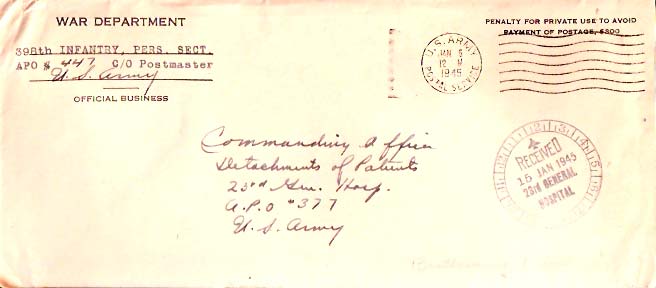 WAR DEPARTMENT
398th INFANTRY, PERS. SECT.
APO # 447 C/O Postmaster
U. S. Army
OFFICIAL BUSINESS
U. S. ARMY
JAN 6
12 M
1945
POSTAL SERVICE
PENALTY FOR PRIVATE USE TO AVOID
PAYMENT OF POSTAGE, $300
Commanding Officer
Detachments of Patients
23rd Gen. Hosp.
A.P.O #377
U. S. Army
RECEIVED
15 JAN 1945
23rd GENERAL
HOSPITAL